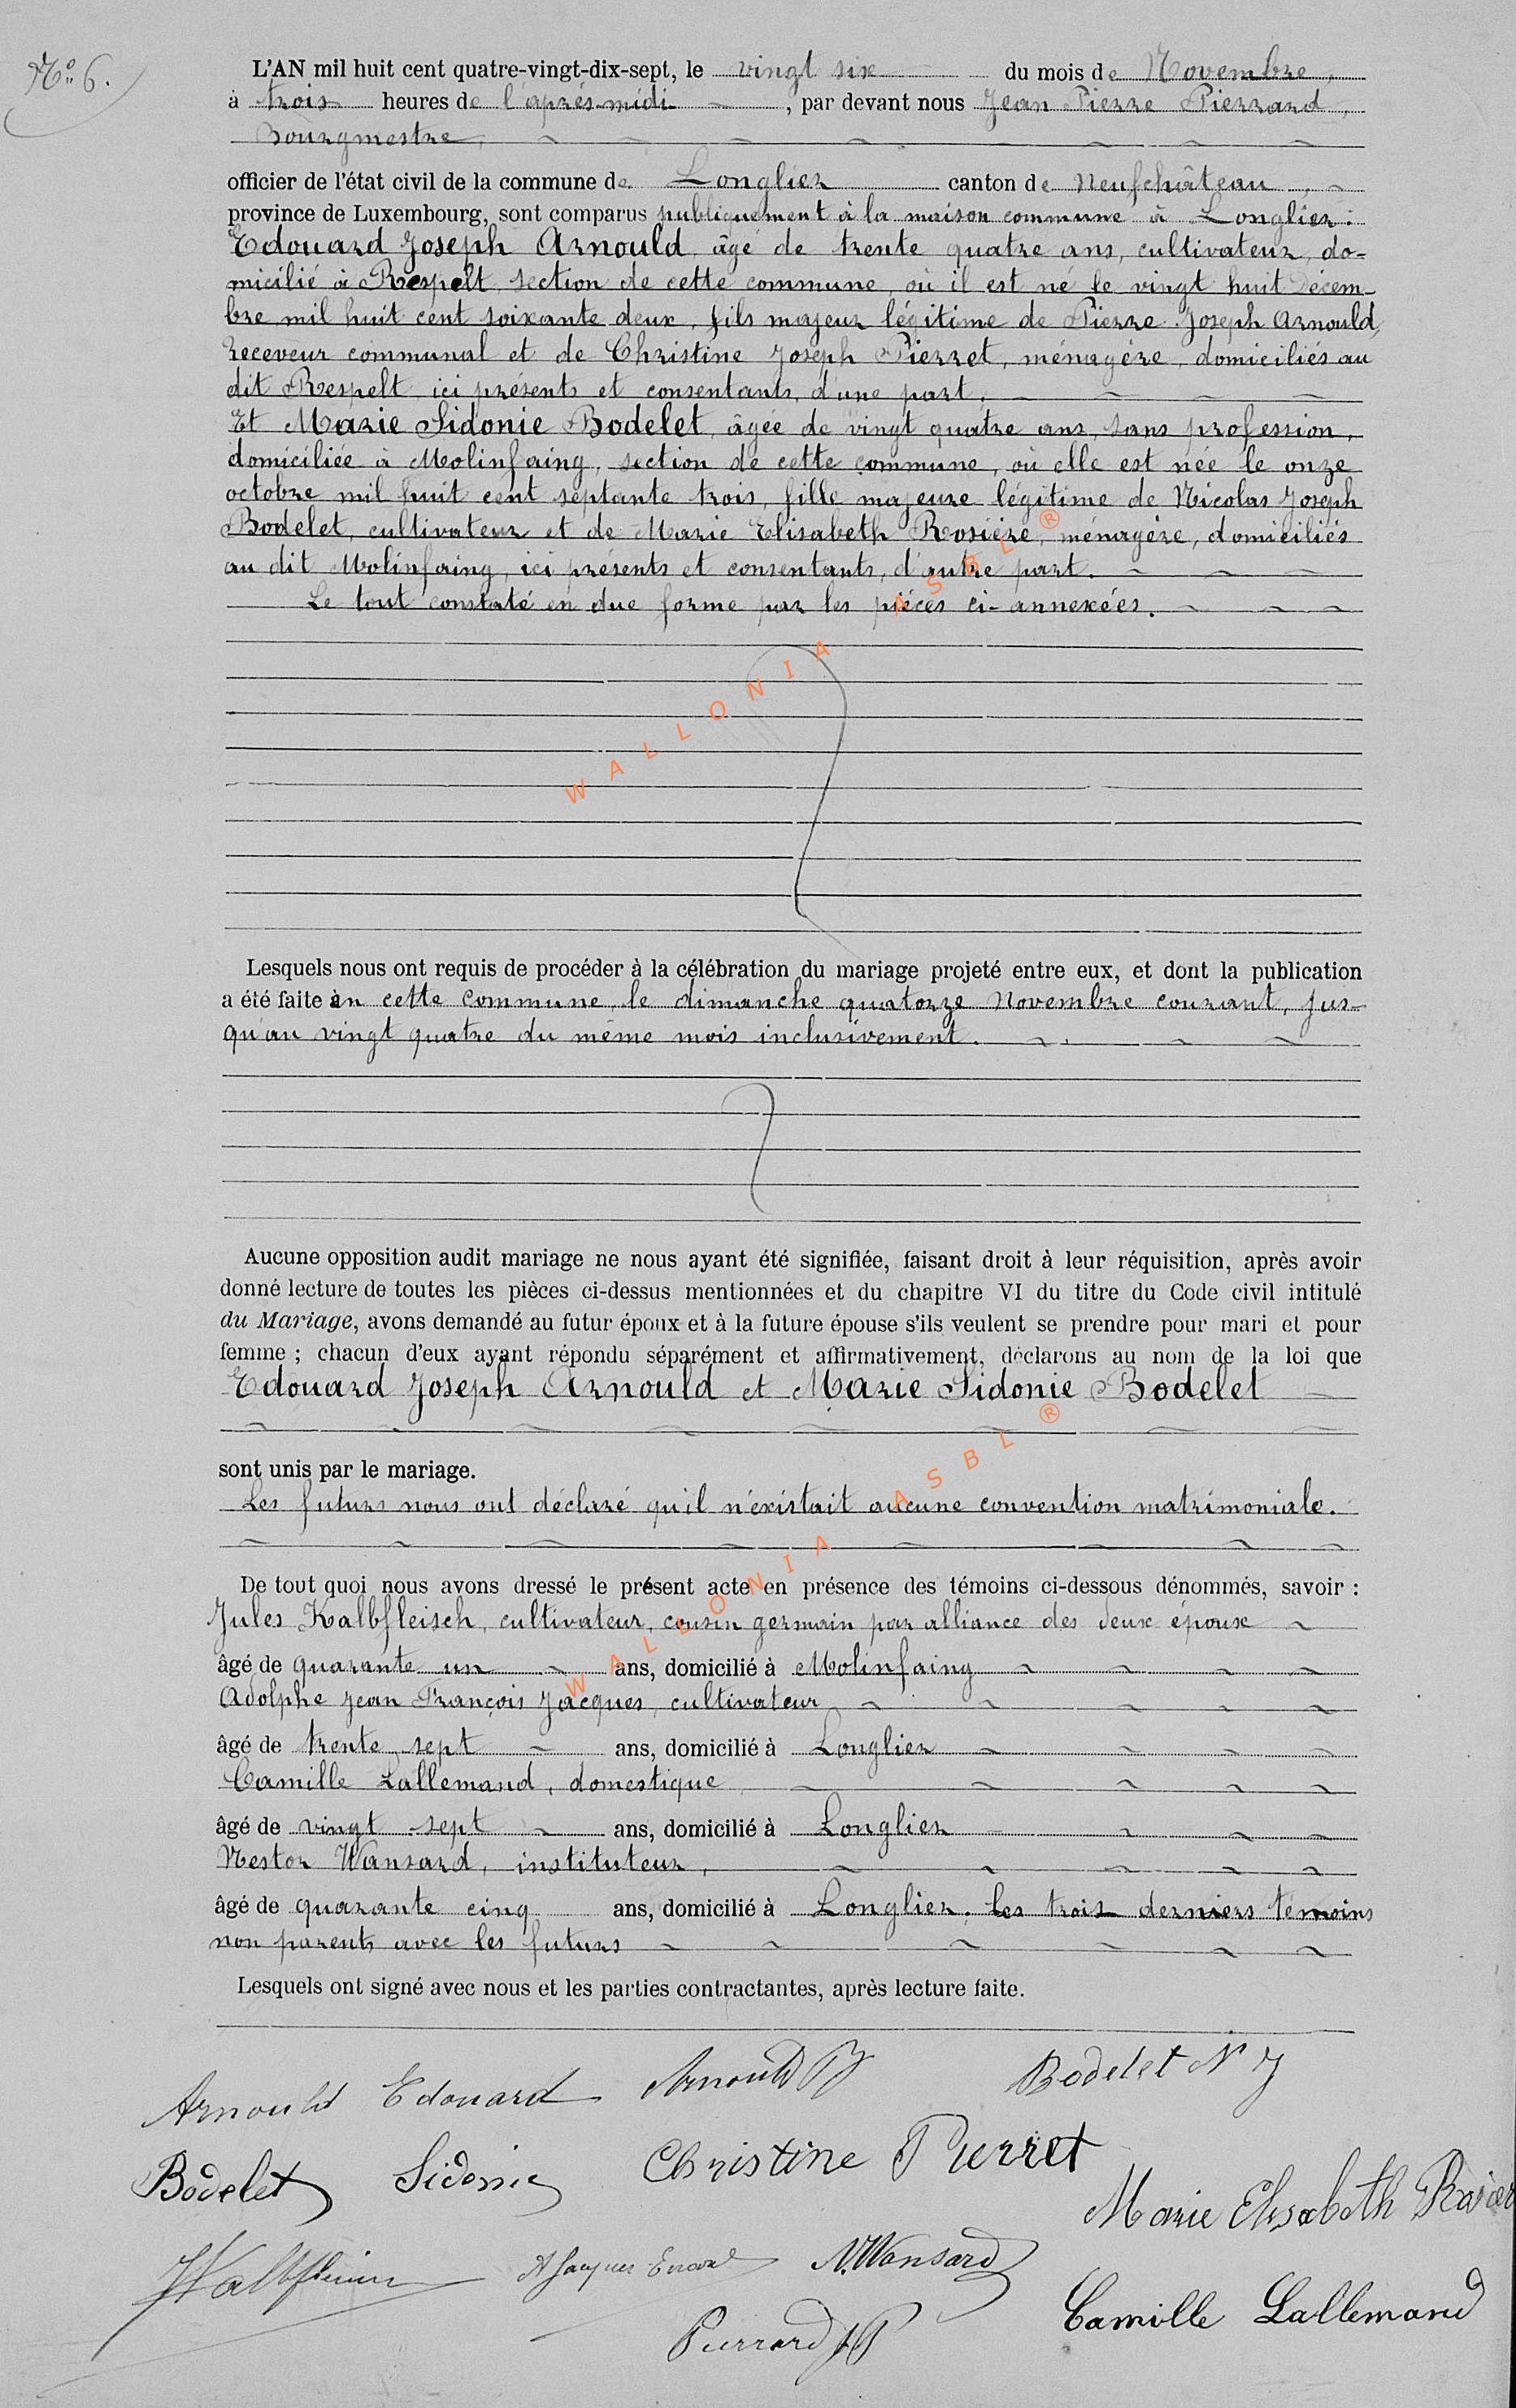 N° 6.
L'AN mil huit cent quatre-vingt-dix-sept, le vingt six du mois de Novembre,
à trois heures de l'après-midi, par devant nous Jean Pierre Pierrard,
Bourgmestre,
officier de l'état civil de la commune de Longlier canton de Neufchâteau,
province de Luxembourg, sont comparus publiquement à la maison commune à Longlier:
Edouard Joseph Arnould, âgé de trente quatre ans, cultivateur, do-
micilié à Respelt, section de cette commune, où il est né le vingt huit Décem-
bre mil huit cent soixante deux, fils majeur légitime de Pierre Joseph Arnould,
receveur communal et de Christine Joseph Pierret, ménagère, domiciliés au
dit Respelt, ici présents et consentants, d'une part.
Et Marie Sidonie Bodelet, âgée de vingt quatre ans, sans profession,
domiciliée à Molinfaing, section de cette commune, où elle est née le onze
octobre mil huit cent septante trois, fille majeure légitime de Nicolas Joseph
Bodelet, cultivateur et de Marie Elisabeth Rosière, ménagère, domiciliés
au dit Molinfaing, ici présents et consentants, d'autre part.
Le tout constaté en due forme par les pièces ci-annexées.
WALLONIA ASBL ®
Lesquels nous ont requis de procéder à la célébration du mariage projeté entre eux, et dont la publication
a été faite en cette commune, le dimanche quatorze Novembre courant, jus-
qu'au vingt quatre du même mois inclusivement.
Aucune opposition audit mariage ne nous ayant été signifiée, faisant droit à leur réquisition, après avoir
donné lecture de toutes les pièces ci-dessus mentionnées et du chapitre VI du titre du Code civil intitulé
du Mariage, avons demandé au futur époux et à la future épouse s'ils veulent se prendre pour mari et pour
femme ; chacun d'eux ayant répondu séparément et affirmativement, déclarons au nom de la loi que
Edouard Joseph Arnould et Marie Sidonie Bodelet
sont unis par le mariage.
Les futurs nous ont déclaré qu'il n'existait aucune convention matrimoniale.
WALLONIA ASBL ®
De tout quoi nous avons dressé le présent acte en présence des témoins ci-dessous dénommés, savoir :
Jules Kalbfleisch, cultivateur, cousin germain par alliance des deux époux
âgé de quarante un ans, domicilié à Molinfaing
Adolphe Jean François Jacques, cultivateur
âgé de trente sept ans, domicilié à Longlier
Camille Lallemand, domestique
âgé de vingt sept ans, domicilié à Longlier
Nestor Wansard, instituteur,
âgé de quarante cinq ans, domicilié à Longlier. Les trois derniers témoins
non parents avec les futurs
Lesquels ont signé avec nous et les parties contractantes, après lecture faite.
Arnould Edouard Arnould PJ Bodelet N J
Bodelet Sidonie Christine Pierret
Marie Elisabeth
A Jacques N. Wansard
Camille Lallemand
Pierrard JP